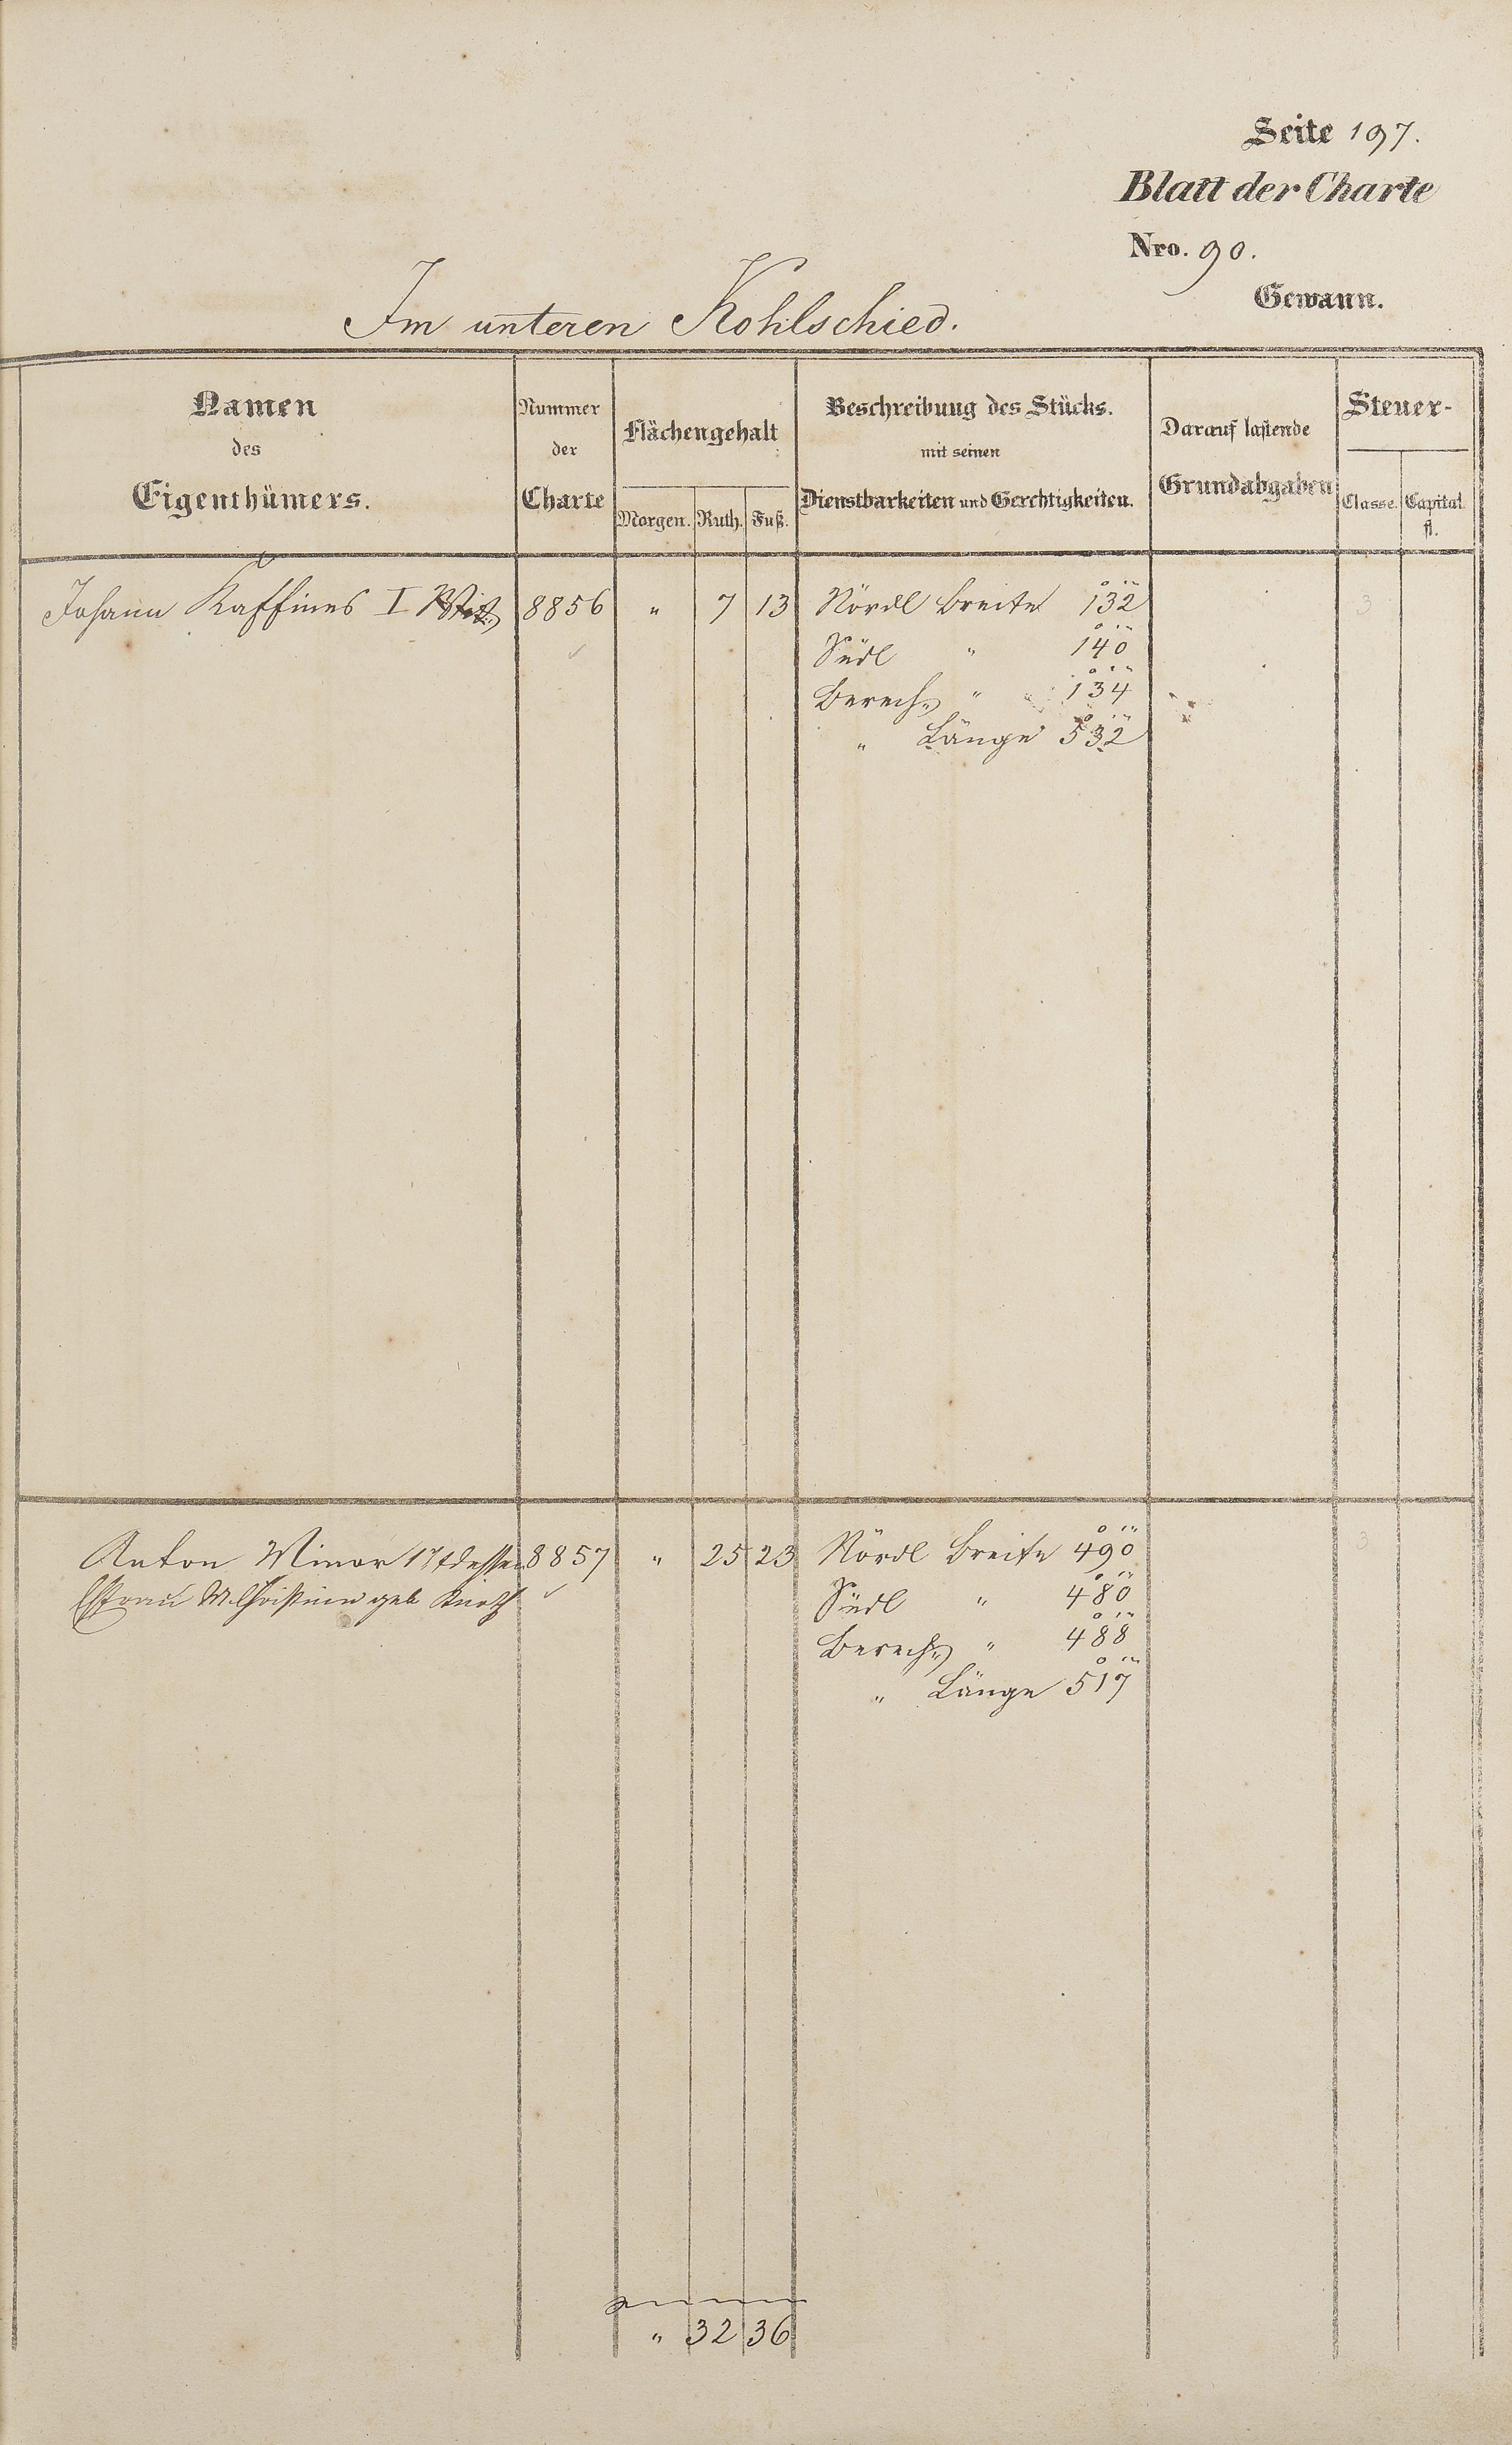 Seite 197.
Blatt der Charte
Nro. 90.
Gewann.
Im unteren Kohlschied.
Namen des Eigenthümers.
Nummer der Charte
Flächengehalt
Morgen. Ruth. Fuß.
Beschreibung des Stücks.
mit seinen
Dienstbarkeiten und Gerechtigkeiten.
Darauf lastende
Grundabgaben
Steuer-
Classe. Capital.
fl.
Johann Kaffines I 8856 " 7 13 Nördl Breite 132 3
Südl " 140
Berech " 134
" Länge 532
Anton Minor 8857 " 25 23 Nördl Breite 490 3
Ehfrau M. Christine geb Südl " 480
Berech " 488
" Länge 517
" 32 36